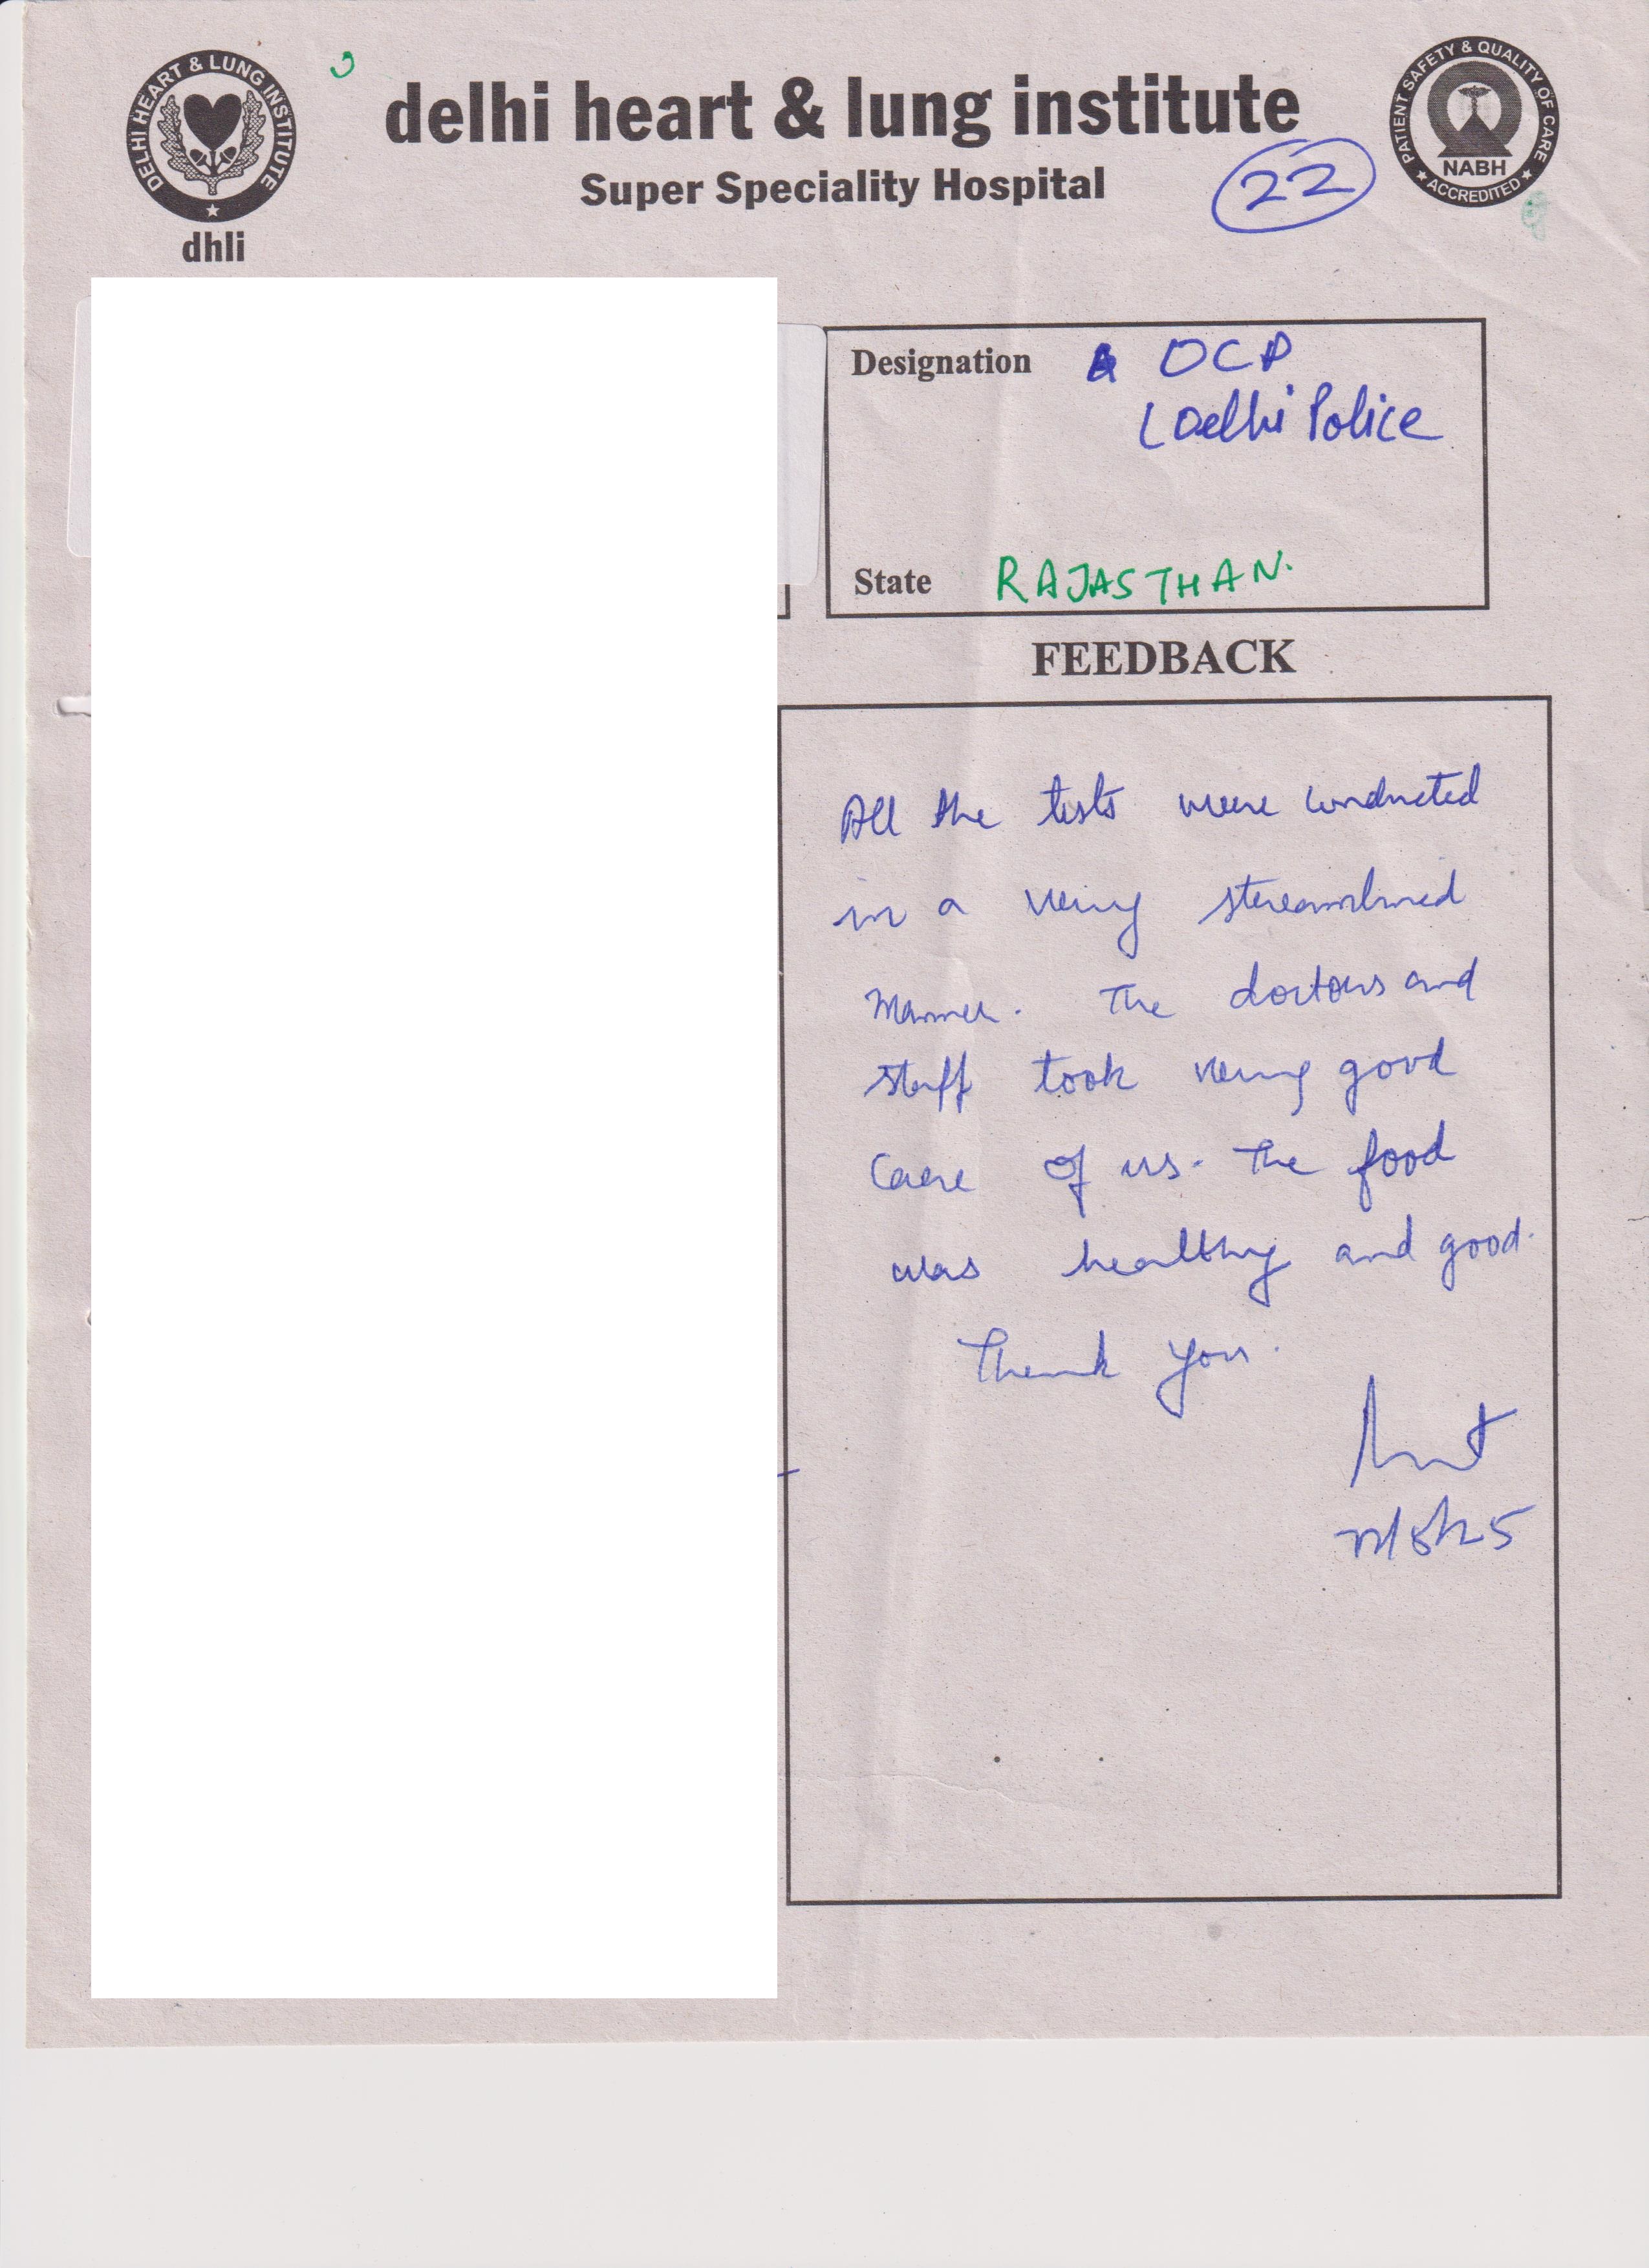 DELHI HEART & LUNG INSTITUTE
dhli
delhi heart & lung institute
Super Speciality Hospital
22
PATIENT SAFETY & QUALITY OF CARE
NABH
ACCREDITED
Designation DCP
(Delhi Police
State RAJASTHAN.
FEEDBACK
All the tests were conducted
in a very streamlined
manner. The doctors and
staff took very good
care of us. The food
was healthy and good.
Thank you.